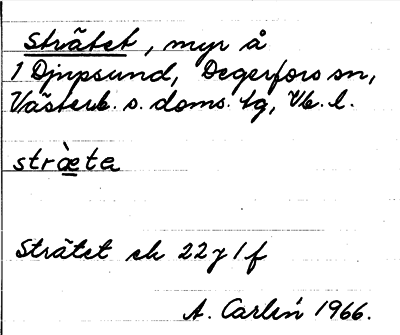 Strätet, myr å
1 Djupsund, Degerfors sn,
Västerb. s. doms. tg, Vb. l.
stræ̀te
Strätet ek 22 7 1 f
A. Carlén 1966.